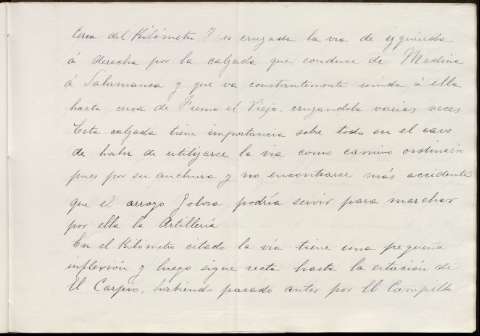 Cerca del Kilómetro 7 es cruzada la via de izquierda
á derecha por la calzada que conduce de Medina
á Salamanca y que va constantemente unida á ella
hasta cerca de el Viejo, cruzandola varias veces
Esta calzada tiene importancia sobre todo en el caso
de haber de utilizarse la via como camino ordinario
pues por su anchura y no encontrarse más accidente
que el arroyo podria servir para marchar
por ella la Artilleria
En el Kilómetro citado la via tiene una pequeña
inflexión y luego sigue recta hasta la estación de
El Carpio, habiendo pasado antes por El Campillo